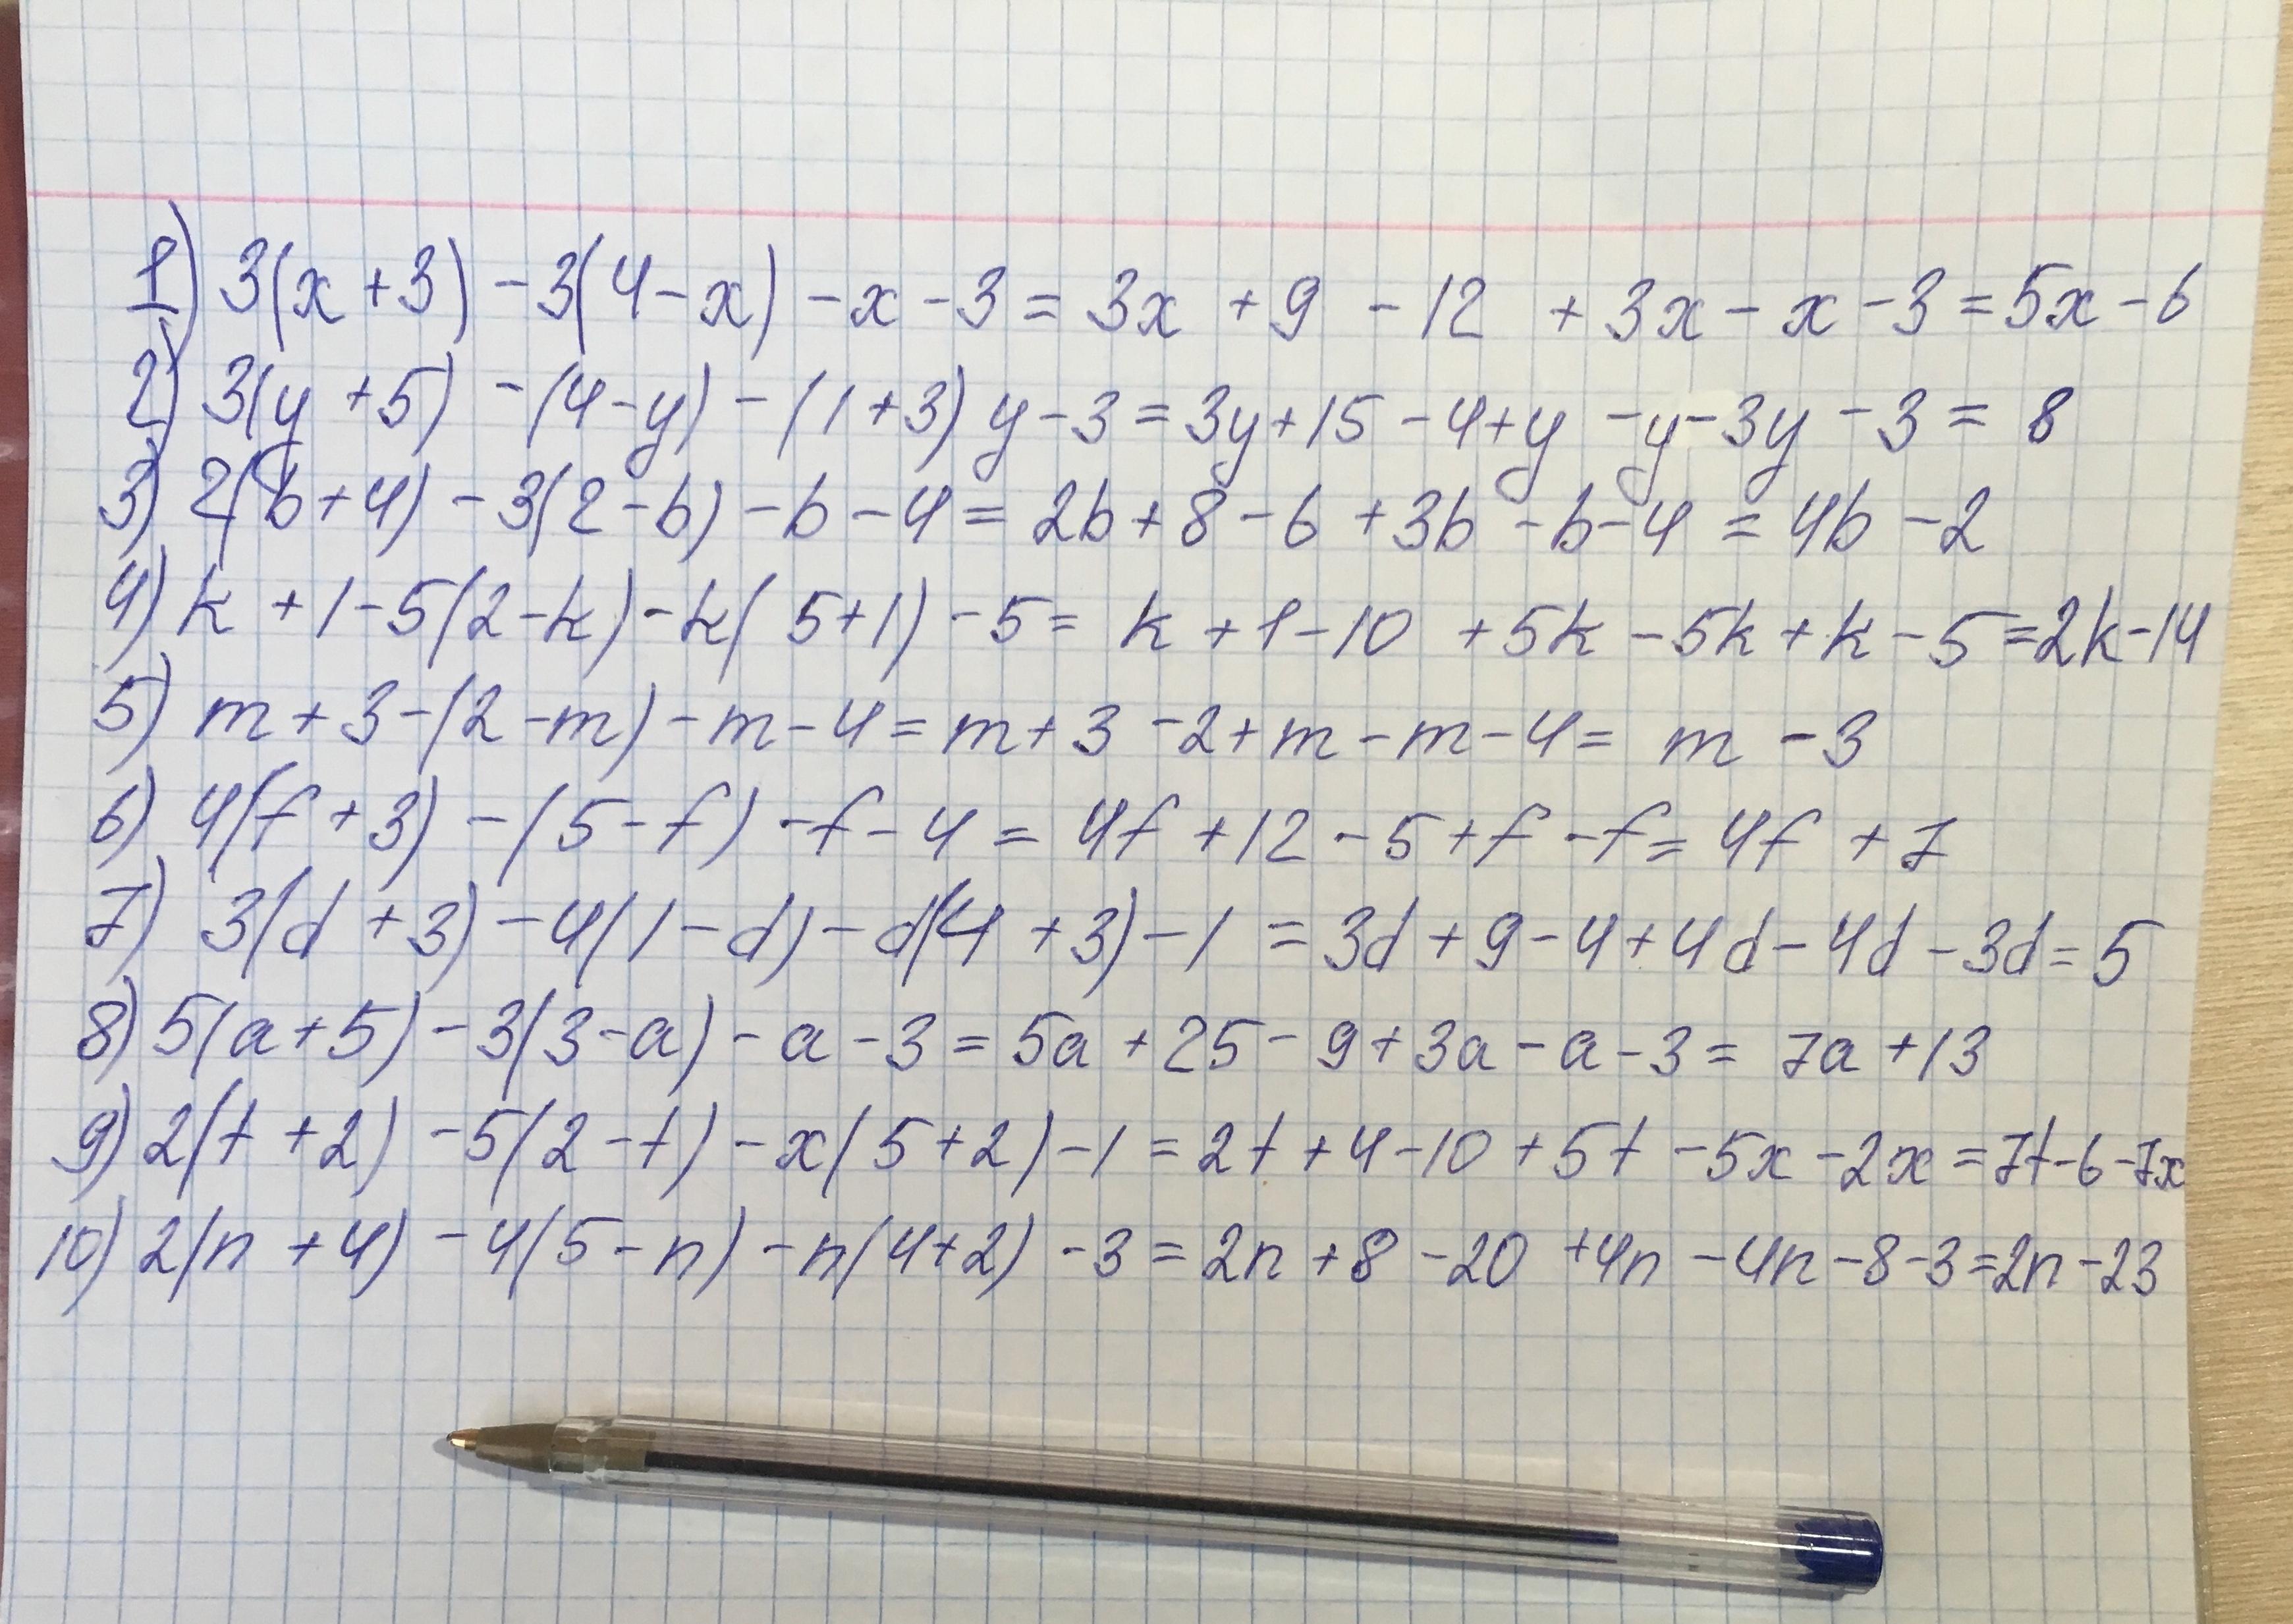 1) 3(x+3) - 3(4-x) - x - 3 = 3x + 9 - 12 + 3x - x - 3 = 5x - 6
2) 3(y+5) - (4-y) - (1+3) y - 3 = 3y + 15 - 4 + y - y - 3y - 3 = 8
3) 2(b+4) - 3(2-b) - b - 4 = 2b + 8 - 6 + 3b - b - 4 = 4b - 2
4) k + 1 - 5(2-k) - k(5+1) - 5 = k + 1 - 10 + 5k - 5k + k - 5 = 2k - 14
5) m + 3 - (2-m) - m - 4 = m + 3 - 2 + m - m - 4 = m - 3
6) 4(f+3) - (5-f) - f - 4 = 4f + 12 - 5 + f - f = 4f + 7
7) 3(d+3) - 4(1-d) - d(4+3) - 1 = 3d + 9 - 4 + 4d - 4d - 3d = 5
8) 5(a+5) - 3(3-a) - a - 3 = 5a + 25 - 9 + 3a - a - 3 = 7a + 13
9) 2(t+2) - 5(2-t) - x(5+2) - 1 = 2t + 4 - 10 + 5t - 5x - 2x = 7t - 6 - 7x
10) 2(n+4) - 4(5-n) - n(4+2) - 3 = 2n + 8 - 20 + 4n - 4n - 8 - 3 = 2n - 23